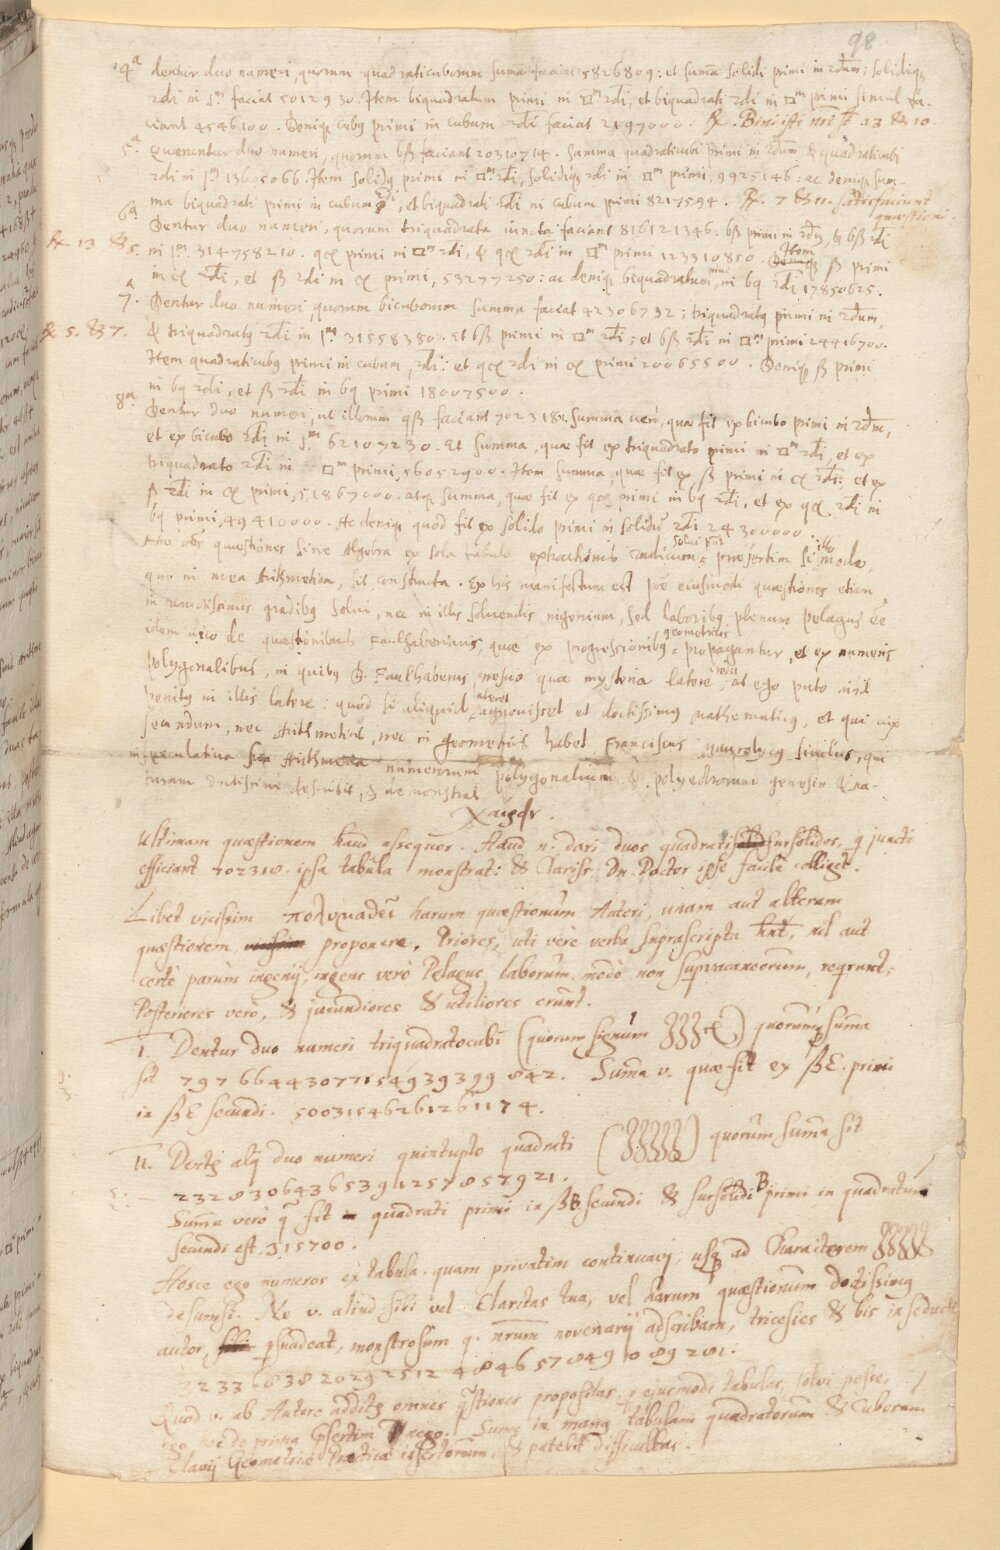 98
4ª dentur duo numeri, quorum quadraticuborum suma faciat 5826809: et suma solidi primi in 2dum, solidiq;
2di in 1m faciat 5012930. Item biquadratum primi in □m 2di, et biquadrati 2di in □m primi simul fa-
ciant 4546100. Deniq; cubq primi in cubum 2di faciat 2197000. ℞. Bini isti nri st 13 & 10.
5ª. Quærentur duo numeri, quorum bß faciant 20310714. Summa quadraticubi primi in 2dum, & quadraticubi
2di in 1m 13605066. Item solidq primi in □m 2di, solidiq; 2di in □m primi, 9925146: ac deniq; sum-
ma biquadrati primi in cubum 2di, et biquadrati 2di in cubum primi 8217594. ℞. 7 & 11. satisfaciunt
quæstioni.
6ª Dentur duo numeri, quorum triquadrata iuncta faciant 816121346: bß primi in 2dum, & bß 2di
℞. 13 & 5. in 1m 314758210. qcc primi in □m 2di, & qcc 2di in □m primi 123310850. Item ß primi
in cc 2di, et ß 2di in cc primi, 53277250: ac deniq; biquadratum primi, in bq 2di 17850625.
7ª. Dentur duo numeri quorum bicuborum summa faciat 42306732; triquadratq primi in 2dum,
℞ 5. & 7. & triquadratq 2di in 1m 31558380. Et bß primi in □m 2di, et bß 2di in □m primi 24416700.
Item quadraticubq primi in cubum 2di: et qcc 2di in cc primi 20065500. Deniq; ß primi
in bq 2di, et ß 2di in bq primi 18007500.
8ª. Dentur duo numeri, ut illorum qß faciant 702318. Summa vero, quæ fit ex bicubo primi in 2dum,
et ex bicubo 2di in 1m 62107230. Et summa, quæ fit ex triquadrato primi in □m 2di, et ex
triquadrato 2di in □m primi, 56052900. Item summa, quæ fit ex ß primi in cc 2di: et ex
ß 2di in cc primi, 51867000. atq; summa, quæ fit ex qcc primi in bq 2di, et ex qcc 2di in
bq primi, 49410000. Ac deniq; quod fit ex solido primi in solidū 2di 24300000.
Hæ oēs quæstiones sine Algebra ex sola tabula extractionis radicum solvi pnt præsertim si illo modo,
quo in mea Arithmetica, sit constructa. Ex his manifestum est p̄e eiusmodi quæstiones etiam
in remotissimis gradibq solvi, nec in illis solvendis ingenium, sed laboribq plenum pelagus ēē
idem dico de quæstionibus Faulhaberianis, quæ ex progressionibq geometricis propagantur, et ex numeris
polygonalibus, in quibq D. Faulhaberus nescio quæ mysteria latere credit at ego puto nihil
penitq in illis latere: quod si aliquid lateret agnovisset et doctissimq mathematicq, et qui vix
secundum, nec Arithmeticâ, nec in geometriis habet Franciscus Maurolycq Siculus, qui
in speculativa sua Arithmetica numerorum polygonalium & polyedrorum genesin & na-
turam doctissime descripsit, & demonstrat
Χαῖρε.
Ultimam quæstionem haud assequor. Haud n. dari duos quadratisursolidos, q juncti
efficiant 702318. ipsa tabula monstrat: & Clariss. Dn. Doctor ipse facile colliget.
Libet vicissim harum quæstionum Autori, unam aut alteram
quæstionem proponere. Priores, uti verè verba suprascripta hnt, nil aut
certè parùm ingenij, ingens verò Pelagus laborum, modò non supervacaneorum, reqrunt;
Posteriores verò, & jucundiores & utiliores erunt.
I. Dentur duo numeri triquadratocubi (quorum signum zzzcc) quorumq; suma
sit 79766443077154939399842. Suma v. quæ fit ex ßE. primi
in ßE secundi. 500315462612611 74.
II. Dentq alij duo numeri quintuplo quadrati (zzzzz) quorum suma sit
232830643653912578 57921.
Suma verò q fit quadrati primi in ßB. secundi & sursolidi B primi in quadratum
secundi est. 315700.
Hosce ego numeros ex tabula, quam privatim continuavi, usq; ad Characterem zzzzz
desumsi. Ne v. aliud sibi vel Claritas tua, vel harum quæstionum doctissimq
autor, psuadeat, monstrosum q. nrum novenarij adscribam, tricesies & bis in se ducti
3233683820292512484657849108928 1.
Quod v. ab Autore additq omnes qstiones propositas, p ejusmodi tabulas, solvi posse,
ego hoc de prima psertim nego. Sume in manq tabulam quadratorum & Cuborum
Clavij Geometriæ Practicæ insertorum, & patebit difficultas.